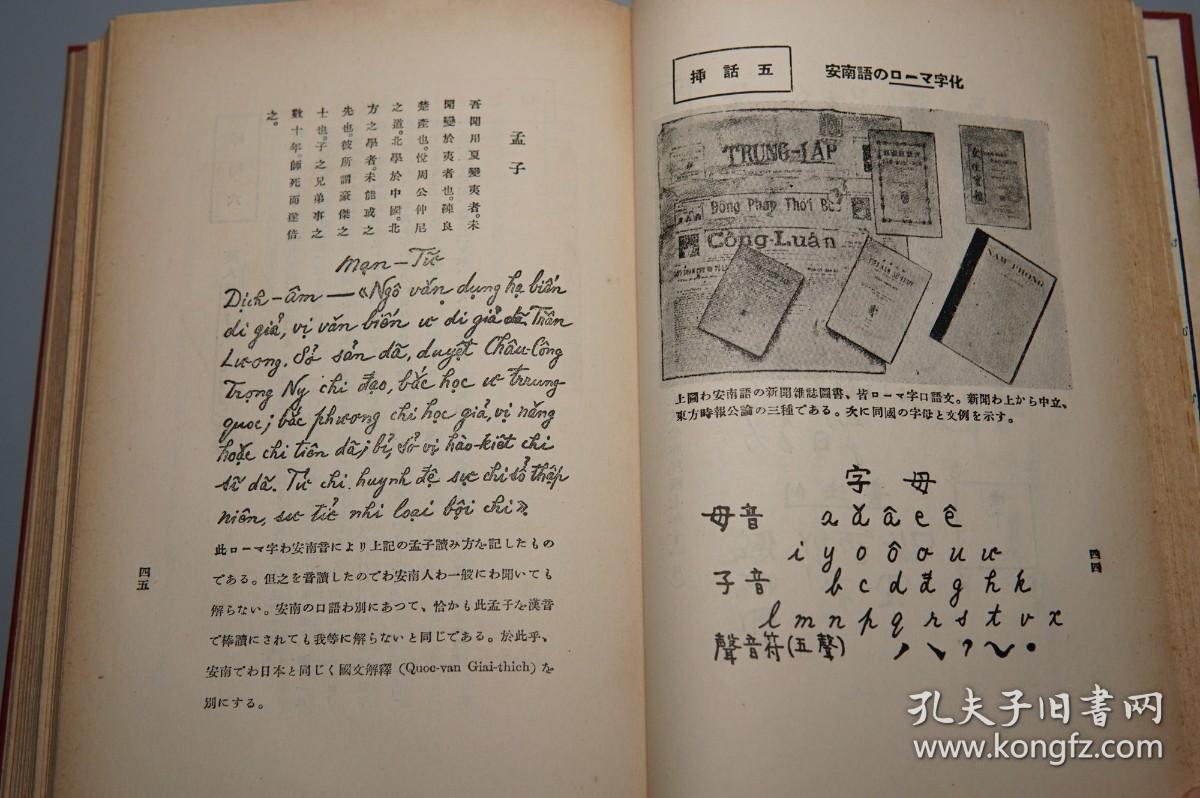 挿話五
安南語のローマ字化
TRUNG-LẬP
Đông Pháp Thời Bá
Công-Luân
NAM PHONG
上圖わ安南語の新聞雜誌圖書、皆ローマ字口語文。新聞わ上から中立、
東方時報公論の三種である。次に同國の字母と文例を示す。
字母
母音 a ă â e ê
i y o ô ơ u ư
子音 b c d đ g h k
l m n p q r s t v x
聲音符(五聲) ׳ ヽ ? ~ •
四四
孟子
吾聞用夏變夷者。未
聞變於夷者也。陳良
楚產也。悅周公仲尼
之道。北學於中國。北
方之學者。未能或之
先也。彼所謂豪傑之
士也。子之兄弟事之
數十年。師死而遂倍
之。
Mạn-Tử
Dịch-âm — «Ngô văn dụng hạ biến
di giả, vị văn biến ư di giả dã Trần
Lương. Sở sản dã, duyệt Châu-Công
Trọng Ny chi đạo, bắc học ư trrung-
quoc; bắc phương chi học giả, vị năng
hoặc chi tiên dã; bỉ, sở vị hào-kiệt chi
sĩ dã. Tử chi huynh đệ sự chi sổ thập
niên, sư tử nhi loại bội chi».
此ローマ字わ安南音により上記の孟子讀み方を記したもの
である。但之を音讀したのでわ安南人わ一般にわ聞いても
解らない。安南の口語わ別にあつて、恰かも此孟子を漢音
で棒讀にされても我等に解らないと同じである。於此乎、
安南でわ日本と同じく國文解釋 (Quoc-van Giai-thich) を
別にする。
四五
孔夫子旧书网
www.kongfz.com